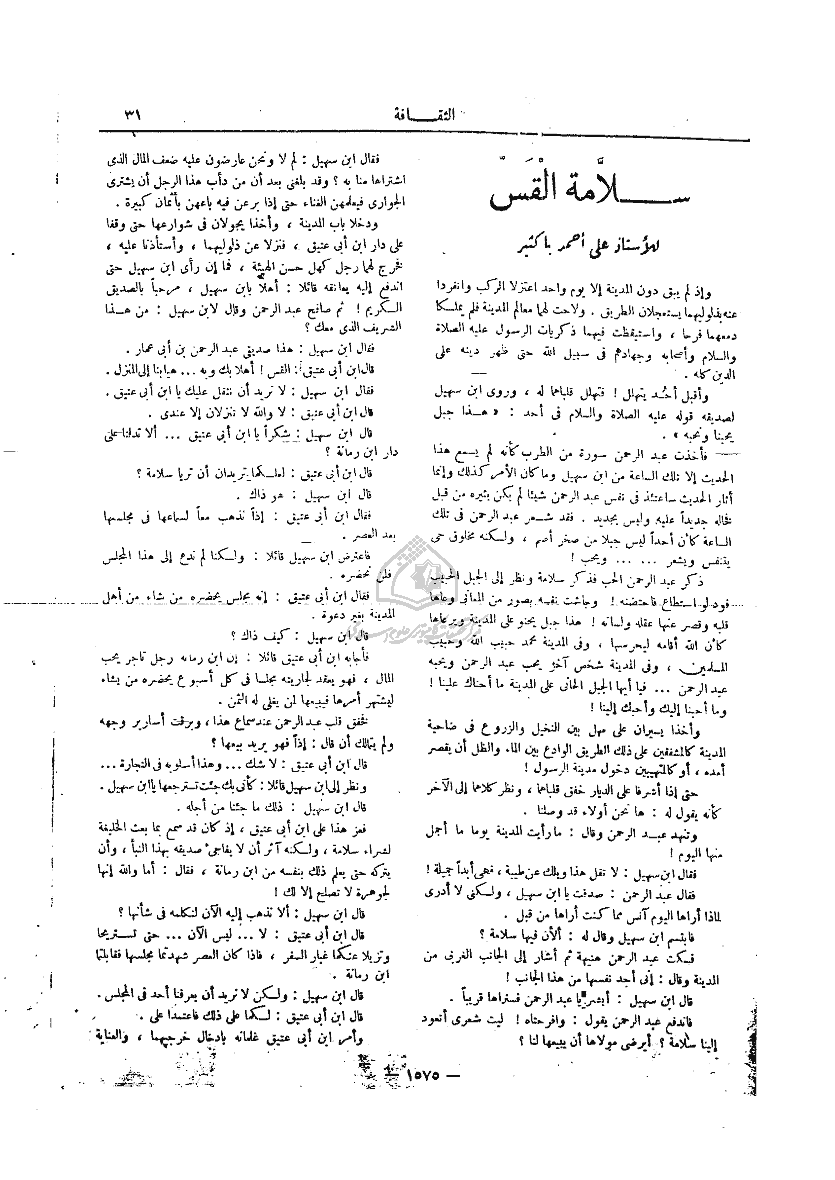 الثقــافة
٣١
سلَّامة الْقَسْ
للأستاذ على أحمد باكثير
وإذ لم يبق دون المدينة إلا يوم واحد اعتزلا الركب وانفردا
عنه بذلوليهما يستعجلان الطريق . ولاحت لهما معالم المدينة فلم يملكا
دمعهما فرحا ، واستيقظت فيهما ذكريات الرسول عليه الصلاة
والسلام وأصحابه وجهادهم فى سبيل الله حتى ظهر دينه على
الدين كله .
وأقبل أحُد يتهلل ! فتهلل قلباهما له ، وروى ابن سهيل
لصديقه قوله عليه الصلاة والسلام فى أحد : « هـذا جبل
يحبنا ونحبه » .
فأخذت عبد الرحمن سورة من الطرب كأنه لم يسمع هذا
الحديث إلا تلك الساعة من ابن سهيل وما كان الأمر كذلك وإنما
أثار الحديث ساعتئذ فى نفس عبد الرحمن شيئا لم يكن يثيره من قبل
فخاله جديداً عليه وليس بجديد . فقد شـعر عبد الرحمن فى تلك
الساعة كأن أحداً ليس جبلا من صخر أصم ، ولكنه مخلوق حى
يتنفس ويشعر ... ... ويحب !
ذكر عبد الرحمن الحب فذكر سلامة ونظر إلى الجبل الحبيب
فود لو استطاع فاحتضنه ! وجاشت نفسه بصور من المعانى وعاها
قلبه وقصر عنها عقله ولسانه ! هذا جبل يحنو على المدينة ويرعاها
كأن الله أقامه ليحرسها ، وفى المدينة محمد حبيب الله وحبيب
المسلمين ، وفى المدينة شخص آخر يحب عبد الرحمن ويحبه
عبد الرحمن ... فيا أيها الجبل الحانى على المدينة ما أحناك علينا !
وما أحبنا إليك وأحبك إلينا !
وأخذا يسيران على مهل بين النخيل والزروع فى ضاحية
المدينة كالمشفقين على ذلك الطريق الوادع بين الماء والظل أن يقصر
أمده ، أو كالمتهيبين دخول مدينة الرسول !
حتى إذا أشرفا على الديار خفق قلباهما ، ونظر كلاهما إلى الآخر
كأنه يقول له : ها نحن أولاء قد وصلنا .
وتنهد عبـد الرحمن وقال : ما رأيت المدينة يوما ما أجمل
منها اليوم !
فقال ابن سهيل : لا تقل هذا ويلك عن طيبة ، فهى أبداً جميلة !
فقال عبد الرحمن : صدقت يا ابن سهيل ، ولكنى لا أدرى
لماذا أراها اليوم آنس مما كنت أراها من قبل .
فابتسم ابن سهيل وقال له : ألأن فيها سلامة ؟
فسكت عبد الرحمن هنيهة ثم أشار إلى الجانب الغربى من
المدينة وقال : إنى أجد نفسها من هذا الجانب !
قال ابن سهيل : أبشر يا عبد الرحمن فستراها قريباً .
فاندفع عبد الرحمن يقول : وافرحتاه ! ليت شعرى أتعود
إلينا سلامة ؟ أيرضى مولاها أن يبيعها لنا ؟
فقال ابن سهيل : لم لا ونحن عارضون عليه ضعف المال الذى
اشتراها منا به ؟ وقد بلغنى بعد أن من دأب هذا الرجل أن يشترى
الجوارى فيعلمهن الغناء حتى إذا برعن فيه باعهن بأثمان كبيرة .
ودخلا باب المدينة ، وأخذا يجولان فى شوارعها حتى وقفا
على دار ابن أبى عتيق ، فنزلا عن ذلوليهما ، وأستأذنا عليه ،
فخرج لهما رجل كهل حسن الهيئة ، فما إن رأى ابن سهيل حتى
اندفع إليه يعانقه قائلا : أهلاً بابن سهيل ، مرحباً بالصديق
الكريم ! ثم صافح عبد الرحمن وقال لابن سهيل : من هـذا
الشريف الذى معك ؟
فقال ابن سهيل : هذا صديقى عبد الرحمن بن أبى عمار .
قال ابن أبى عتيق : القس ! أهلا بك وبه ... هيا بنا إلى المنزل .
فقال ابن سهيل : لا نريد أن نثقل عليك يا ابن أبى عتيق .
قال ابن أبى عتيق : لا والله لا تنزلان إلا عندى .
قال ابن سهيل : شكراً يا ابن أبى عتيق ... ألا تدلنا على
دار ابن رمانة ؟
قال ابن أبى عتيق : لعلكما تريدان أن تريا سلامة ؟
قال ابن سهيل : هو ذاك .
فقال ابن أبى عتيق : إذاً نذهب معاً لسماعها فى مجلسها
بعد العصر .
فاعترض ابن سهيل قائلا : ولكنا لم ندع إلى هذا المجلس
فلن نحضره .
فقال ابن أبى عتيق : إنه مجلس يحضره من شاء من أهل
المدينة بغير دعوة .
قال ابن سهيل : كيف ذاك ؟
فأجابه ابن أبى عتيق قائلا : إن ابن رمانة رجل تاجر يحب
المال ، فهو يعقد لجاريته مجلسا فى كل أسبوع يحضره من يشاء
ليشتهر أمرها فيبيعها لمن يغلى له الثمن .
فخفق قلب عبد الرحمن عند سماع هذا ، وبرقت أسارير وجهه
ولم يتمالك أن قال : إذاً فهو يريد بيعها ؟
قال ابن أبى عتيق : لا شك ... وهذا أسلوبه فى التجارة ...
ونظر إلى ابن سهيل قائلا : كأنى بك جئت تسترجعها يا ابن سهيل .
قال ابن سهيل : ذلك ما جئنا من أجله .
فعز هذا على ابن أبى عتيق ، إذ كان قد سمع بما بعث الخليفة
لشراء سلامة ، ولكنه آثر أن لا يفاجىء صديقه بهذا النبأ ، وأن
يتركه حتى يعلم ذلك بنفسه من ابن رمانة ، فقال : أما والله إنها
لجوهرة لا تصلح إلا لك !
قال ابن سهيل : ألا نذهب إليه الآن لنكلمه فى شأنها ؟
قال ابن أبى عتيق : لا ... ليس الآن ... حتى تستريحا
وتزيلا عنكما غبار السفر ، فاذا كان العصر شهدتما مجلسها فقابلتما
ابن رمانة .
قال ابن سهيل : ولكن لا نريد أن يعرفنا أحد فى المجلس .
قال ابن أبى عتيق : لكما على ذلك فاعتمدا على .
وأمر ابن أبى عتيق غلمانه بادخال خرجيهما ، والعناية
— ١٥٧٥ —